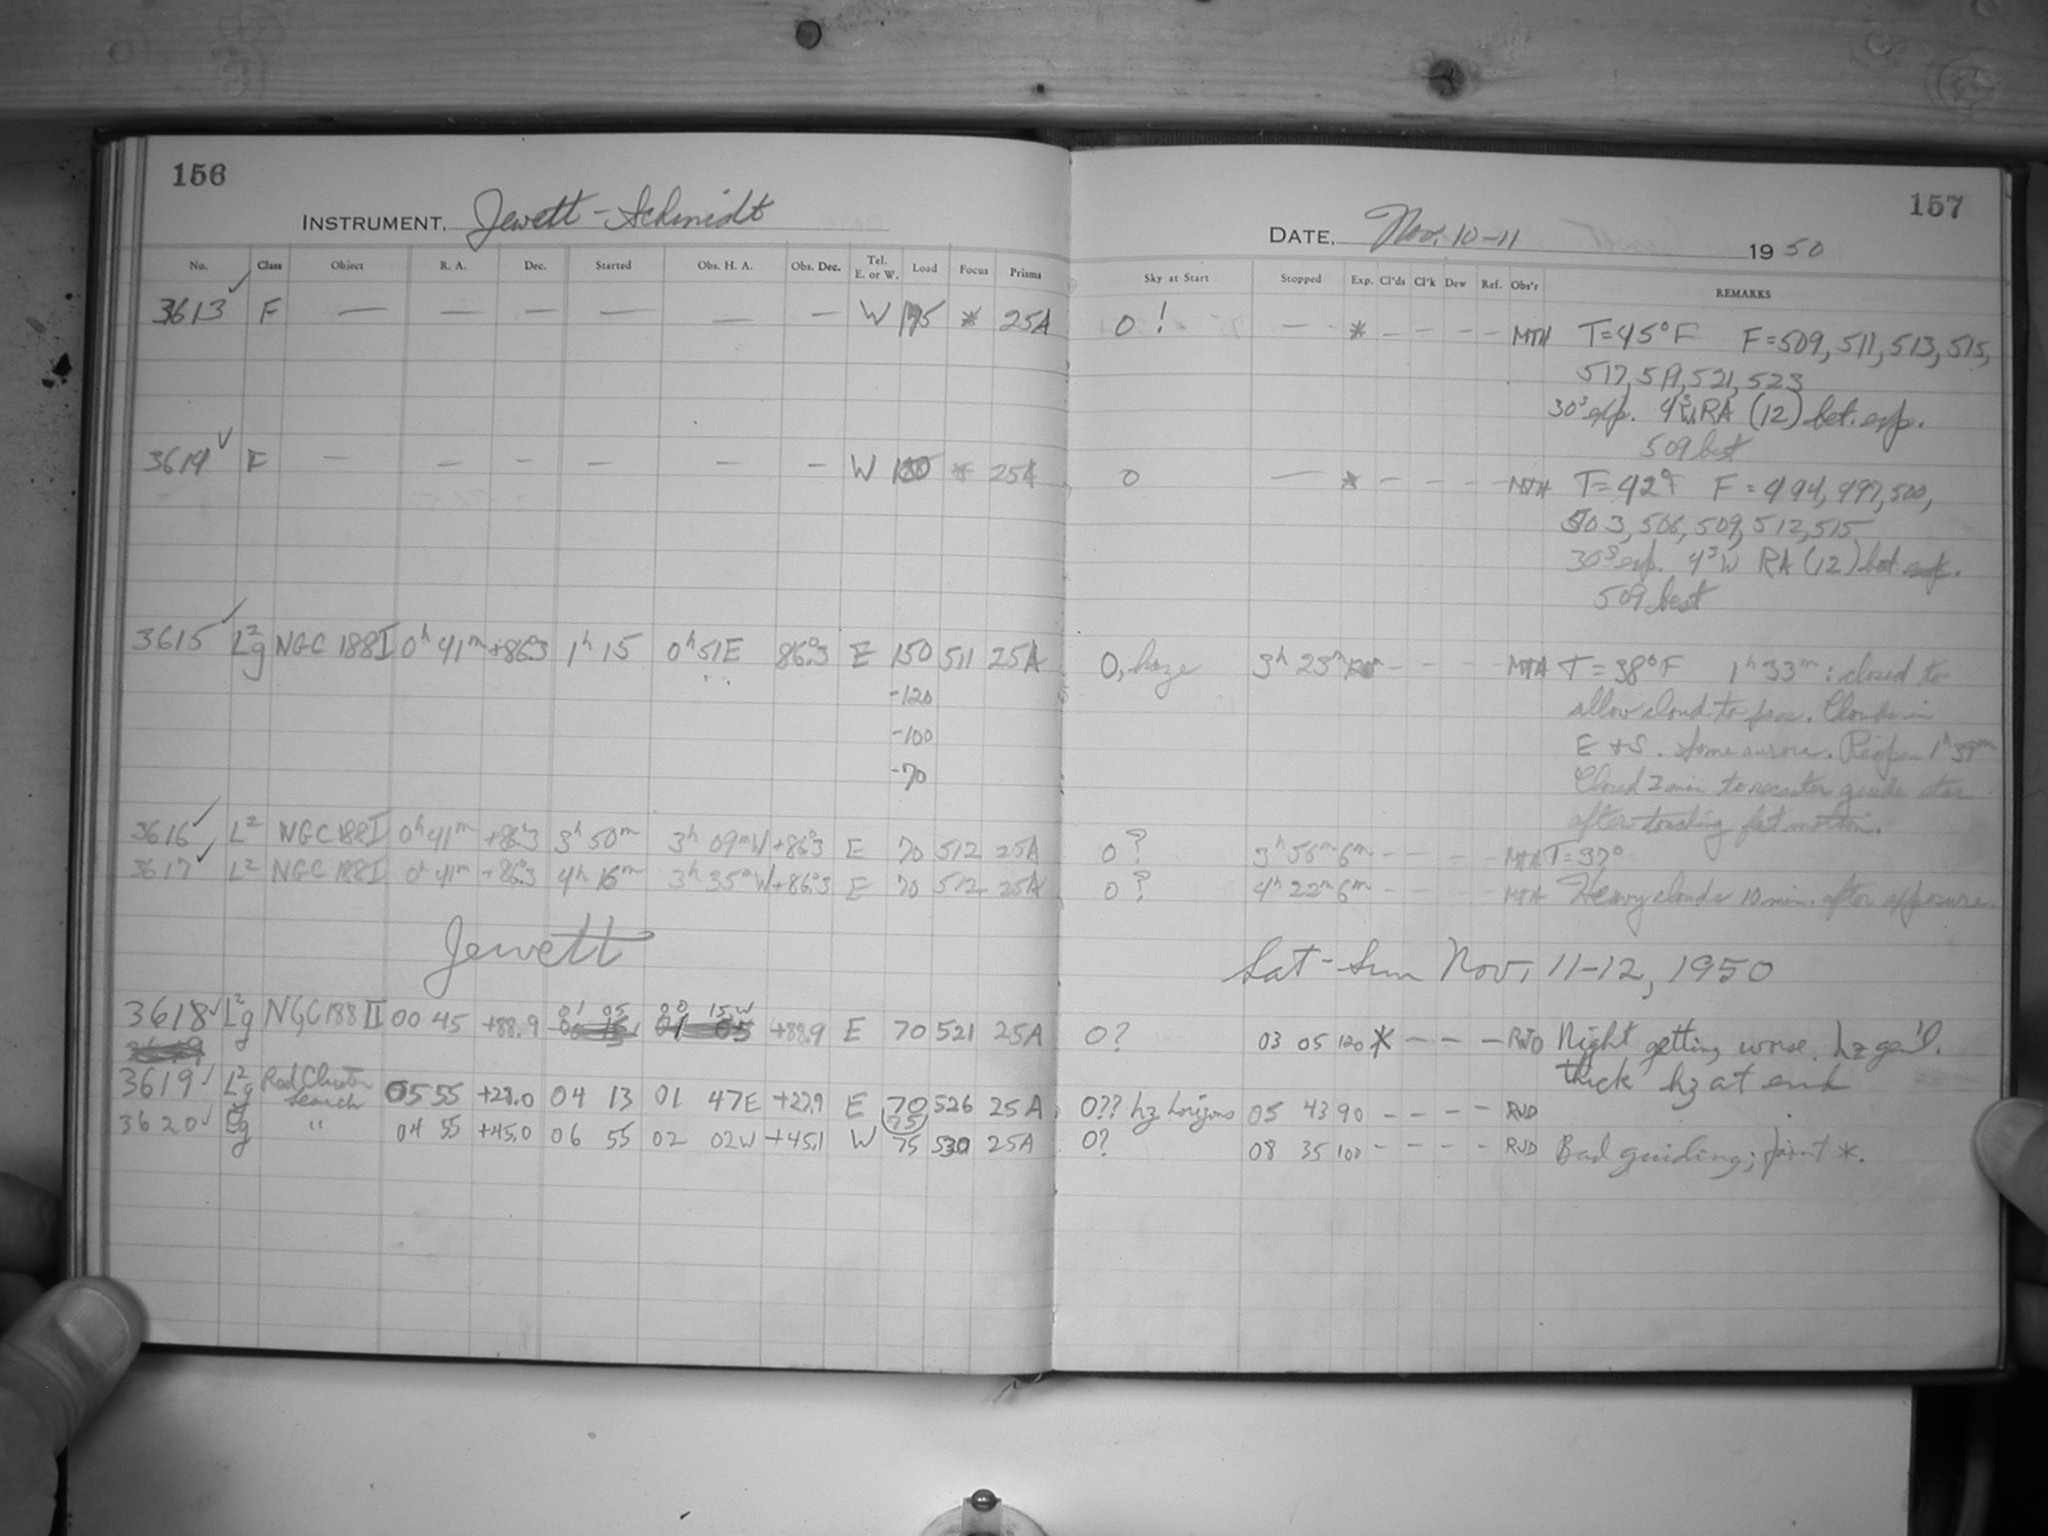 156
INSTRUMENT. Jewett-Schmidt
No. Class Object R. A. Dec. Started Obs. H. A. Obs. Dec. Tel. E. or W. Load Focus Prisms
3613 ✓ F — — — — — — W 195 * 25A
3614 ✓ F — — — — — — W * 25A
3615 ✓ L²g NGC 188 I 0ʰ 41ᵐ +86°.3 1ʰ 15 0ʰ 51E 86°.3 E 150 511 25A
-120
-100
-70
3616 ✓ L² NGC 188 I 0ʰ 41ᵐ +86°.3 3ʰ 50ᵐ 3ʰ 09ᵐW +86°.3 E 70 512 25A
3617 ✓ L² NGC 188 I 0ʰ 41ᵐ +86°.3 4ʰ 16ᵐ 3ʰ 35ᵐW +86°.3 E 70 512 25A
Jewett
3618 ✓ L²g NGC 188 II 00 45 +88.9 01 05 00 15W +88.9 E 70 521 25A
3619 ✓ L²g Rad Cluster search 05 55 +28.0 04 13 01 47E +27.9 E 70 (75) 526 25A
3620 ✓ g " 04 55 +45.0 06 55 02 02W +45.1 W 75 530 25A
157
DATE. Nov. 10-11 1950
Sky at Start Stopped Exp. Cl'ds Cl'k Dew Ref. Obs'r REMARKS
0 ! — * - - - - MTH T=45°F F=509, 511, 513, 515,
517, 519, 521, 523
30ˢ exp. 4ˢW RA (12) bet. exp.
509 best
0 — * - - - - MTH T=42°F F=494, 497, 500,
503, 506, 509, 512, 515
30ˢ exp. 4ˢW RA (12) bet exp.
509 best
0, haze 3ʰ 23ᵐ - - - - MTH T=38°F 1ʰ 33ᵐ: closed to
allow cloud to pass. Clouds in
E + S. Some aurora. Reopen 1ʰ 39ᵐ
Closed 2 min to recenter guide star
after touching fast motion.
0? 3ʰ 56ᵐ 6ᵐ - - - - MTH T=37°
0? 4ʰ 22ᵐ 6ᵐ - - - - MTH Heavy clouds 10 min. after exposure.
Sat-Sun Nov. 11-12, 1950
0? 03 05 120 * - - - RJD Night getting worse. hz gen'l.
thick hz at end
0?? hz horizons 05 43 90 - - - - RJD
0? 08 35 100 - - - - RJD Bad guiding; faint *.